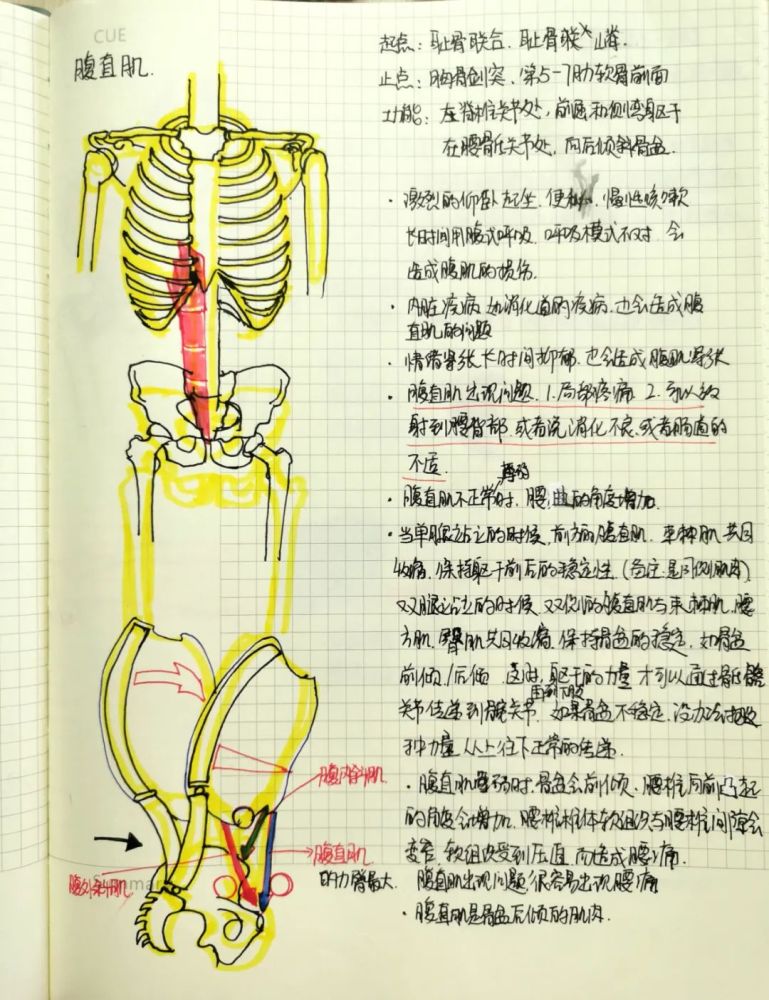 CUE
腹直肌.
起点: 耻骨联合. 耻骨联 嵴.
止点: 胸骨剑突. 第5-7肋软骨前面
功能: 在脊柱关节处, 前屈和侧弯躯干
在腰骶关节处, 向后倾斜骨盆.
· 激烈的仰卧起坐. 便秘. 慢性咳嗽
长时间用腹式呼吸. 呼吸模式不对. 会
造成腹肌的损伤.
· 内脏疾病. 如消化道的疾病. 也会造成腹
直肌的问题
· 情绪紧张 长时间抑郁. 也会造成腹肌紧张
· 腹直肌出现问题. 1.局部疼痛 2.可以放
射到腰背部. 或者说消化不良. 或者肠道的
不适.
· 腹直肌不正常时. 腰曲的角度增加.
· 当单腿站立的时候, 前方的腹直肌. 束棘肌共同
收缩. 保持躯干前后的稳定性 (备注: 是同侧肌肉)
双腿站立的时候 双侧的腹直肌与束棘肌. 腰
方肌. 臀肌共同收缩. 保持骨盆的稳定. 如骨盆
前倾/后倾 这时, 躯干的力量 才可以通过骶髂
关节传递到髋关节 如果骨盆不稳定. 没办法
种力量从上往下正常的传递.
· 腹直肌 时. 骨盆会前倾. 腰椎向前凸起
的角度会增加. 腰椎椎体软组织与腰椎间隙会
变窄. 软组织受到压迫 而造成腰痛.
腹直肌出现问题 很容易出现腰痛
· 腹直肌是骨盆后倾的肌肉.
腹内斜肌
腹直肌
的力臂最大.
腹外斜肌